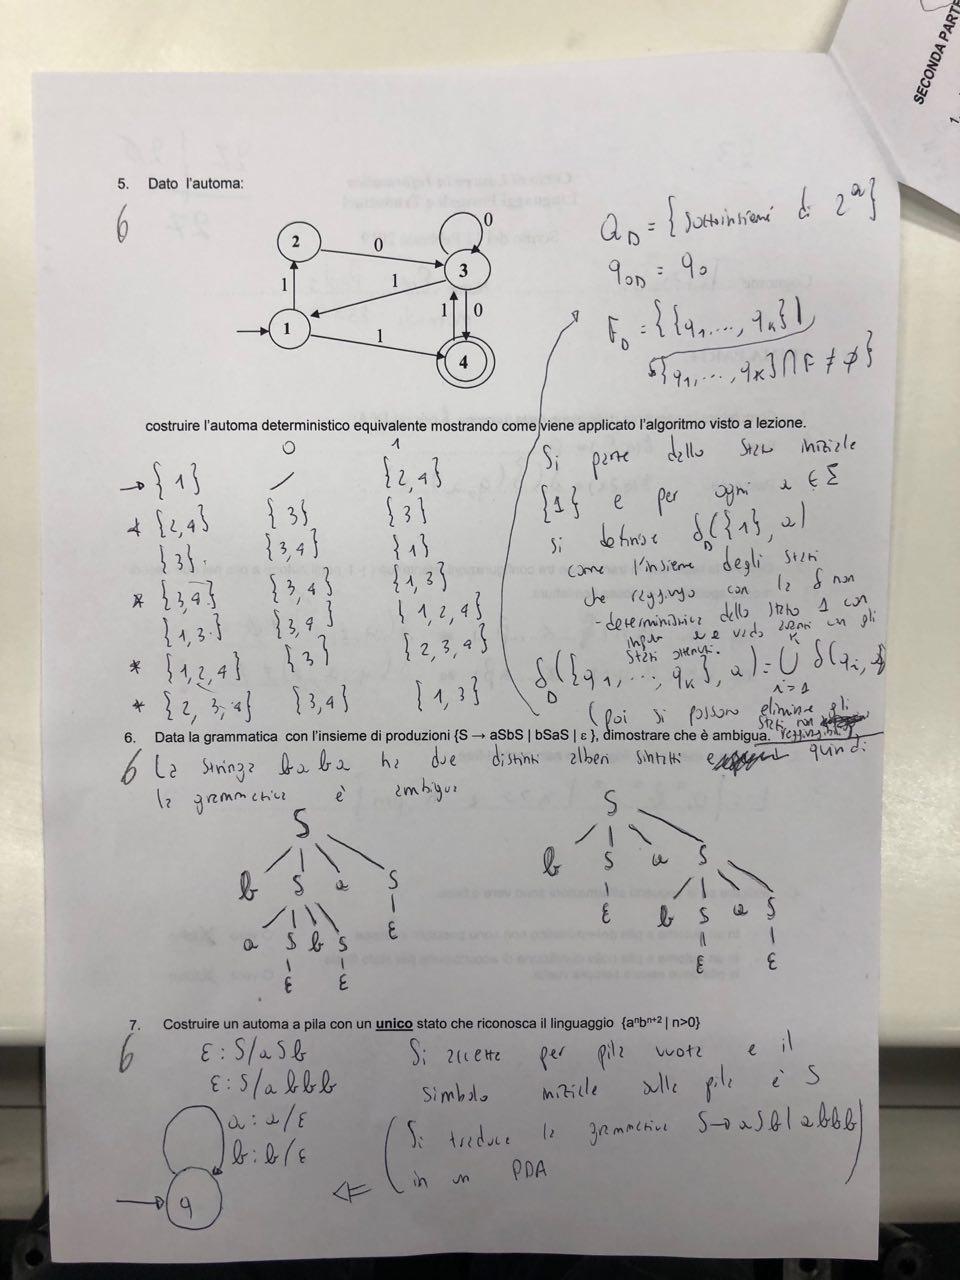 SECONDA PARTE
1.
5. Dato l'automa:
6
2
0
0
3
1
1
1
0
1
1
4
Q_D = {Sottoinsiemi di 2^Q}
q_0D = q_0
F_D = {{q_1, ..., q_k} |
{q_1, ..., q_k} ∩ F ≠ ∅}
costruire l'automa deterministico equivalente mostrando come viene applicato l'algoritmo visto a lezione.
0 1
→ {1} — {2,4}
* {2,4} {3} {3}
{3} {3,4} {1}
* {3,4} {3,4} {1,3}
{1,3} {3,4} {1,2,4}
* {1,2,4} {3} {2,3,4}
* {2,3,4} {3,4} {1,3}
Si parte dallo stato iniziale
{1} e per ogni a ∈ Σ
si definisce δ_D({1}, a)
come l'insieme degli stati
che raggiungo con la δ non
-deterministica dello stato 1 con
input a e vado avanti con gli
stati ottenuti.
δ_D({q_1, ..., q_k}, a) = ⋃_{i=1}^{k} δ(q_i, a)
(poi si possono eliminare gli
stati non raggiungibili)
6. Data la grammatica con l'insieme di produzioni {S → aSbS | bSaS | ε }, dimostrare che è ambigua.
6 La stringa baba ha due distinti alberi sintattici e quindi
la grammatica è ambigua
S
b S a S
a S b S ε
ε ε
S
b S a S
ε b S a S
ε ε
7. Costruire un automa a pila con un unico stato che riconosca il linguaggio {aⁿbⁿ⁺² | n>0}
6
ε : S/aSb
ε : S/abbb
a : a/ε
b : b/ε
q
Si accetta per pila vuota e il
simbolo iniziale sulla pila è S
(Si traduce la grammatica S → aSb | abbb
in un PDA)
⇐